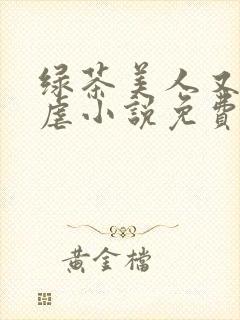 绿茶美人又
虐小說免費
黄金檔